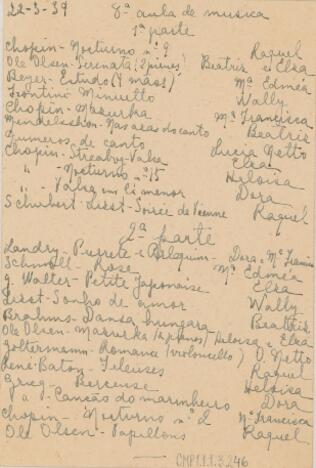 22-3-39 8ª aula de musica
1ª parte
Chopin - Nocturno nº 9 Raquel
Ole Olsen - Serenata (2 pianos) Beatriz e Elsa
Beyer - Estudo (4 mãos) Mª Edméa
Frontini Minuetto Wally
Chopin - Mazurka Mª Francisca
Mendelssohn - Nas asas do canto Beatriz
Numeros de canto Lucia Netto
Chopin - Streabog - Valse Elsa
" - Nocturno nº 15 Heloisa
" - Valsa em si menor Dora
Schubert Liszt - Soirée de Vienne Raquel
2ª parte
Landry - Pierrete - Arlequim - Dora e Mª Francis
Schmoll - Rose Mª Edméa
J. Walter - Petite Japonaise Elsa
Liszt - Sonho de amor Wally
Brahms - Dansa hungara Beatriz
Ole Olsen - Mazurka (2 pianos) Heloisa e Elsa
Goltermann - Romana (violoncello) O. Netto
René Baton - Fileuses Raquel
Grieg - Berceuse Heloisa
" - Canção do marinheiro Dora
Chopin - Nocturno nº 2 Mª Francisca
Ole Olsen - Papillons Raquel
CMP1.1.3.246